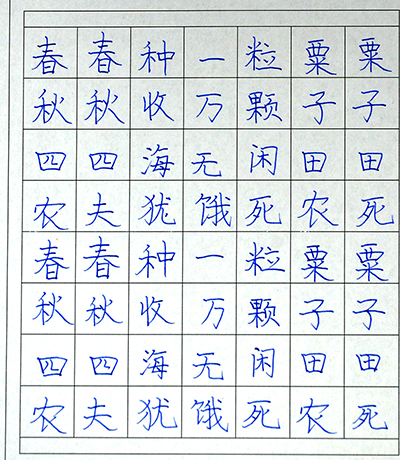 春春种一粒粟粟
秋秋收万颗子子
四四海无闲田田
农夫犹饿死农死
春春种一粒粟粟
秋秋收万颗子子
四四海无闲田田
农夫犹饿死农死